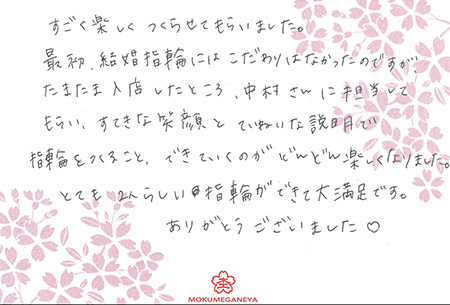 すごく楽しく つくらせてもらいました。
最初、結婚指輪には こだわりは なかったのですが、
たまたま 入店 したところ、中村 さん に 担当して
もらい、すてきな 笑顔 と ていねいな 説明 で
指輪 を つくること、できていくのが どんどん 楽しくなりました。
とても 2人らしい 指輪が できて 大満足です。
ありがとう ございました ♡
MOKUMEGANEYA